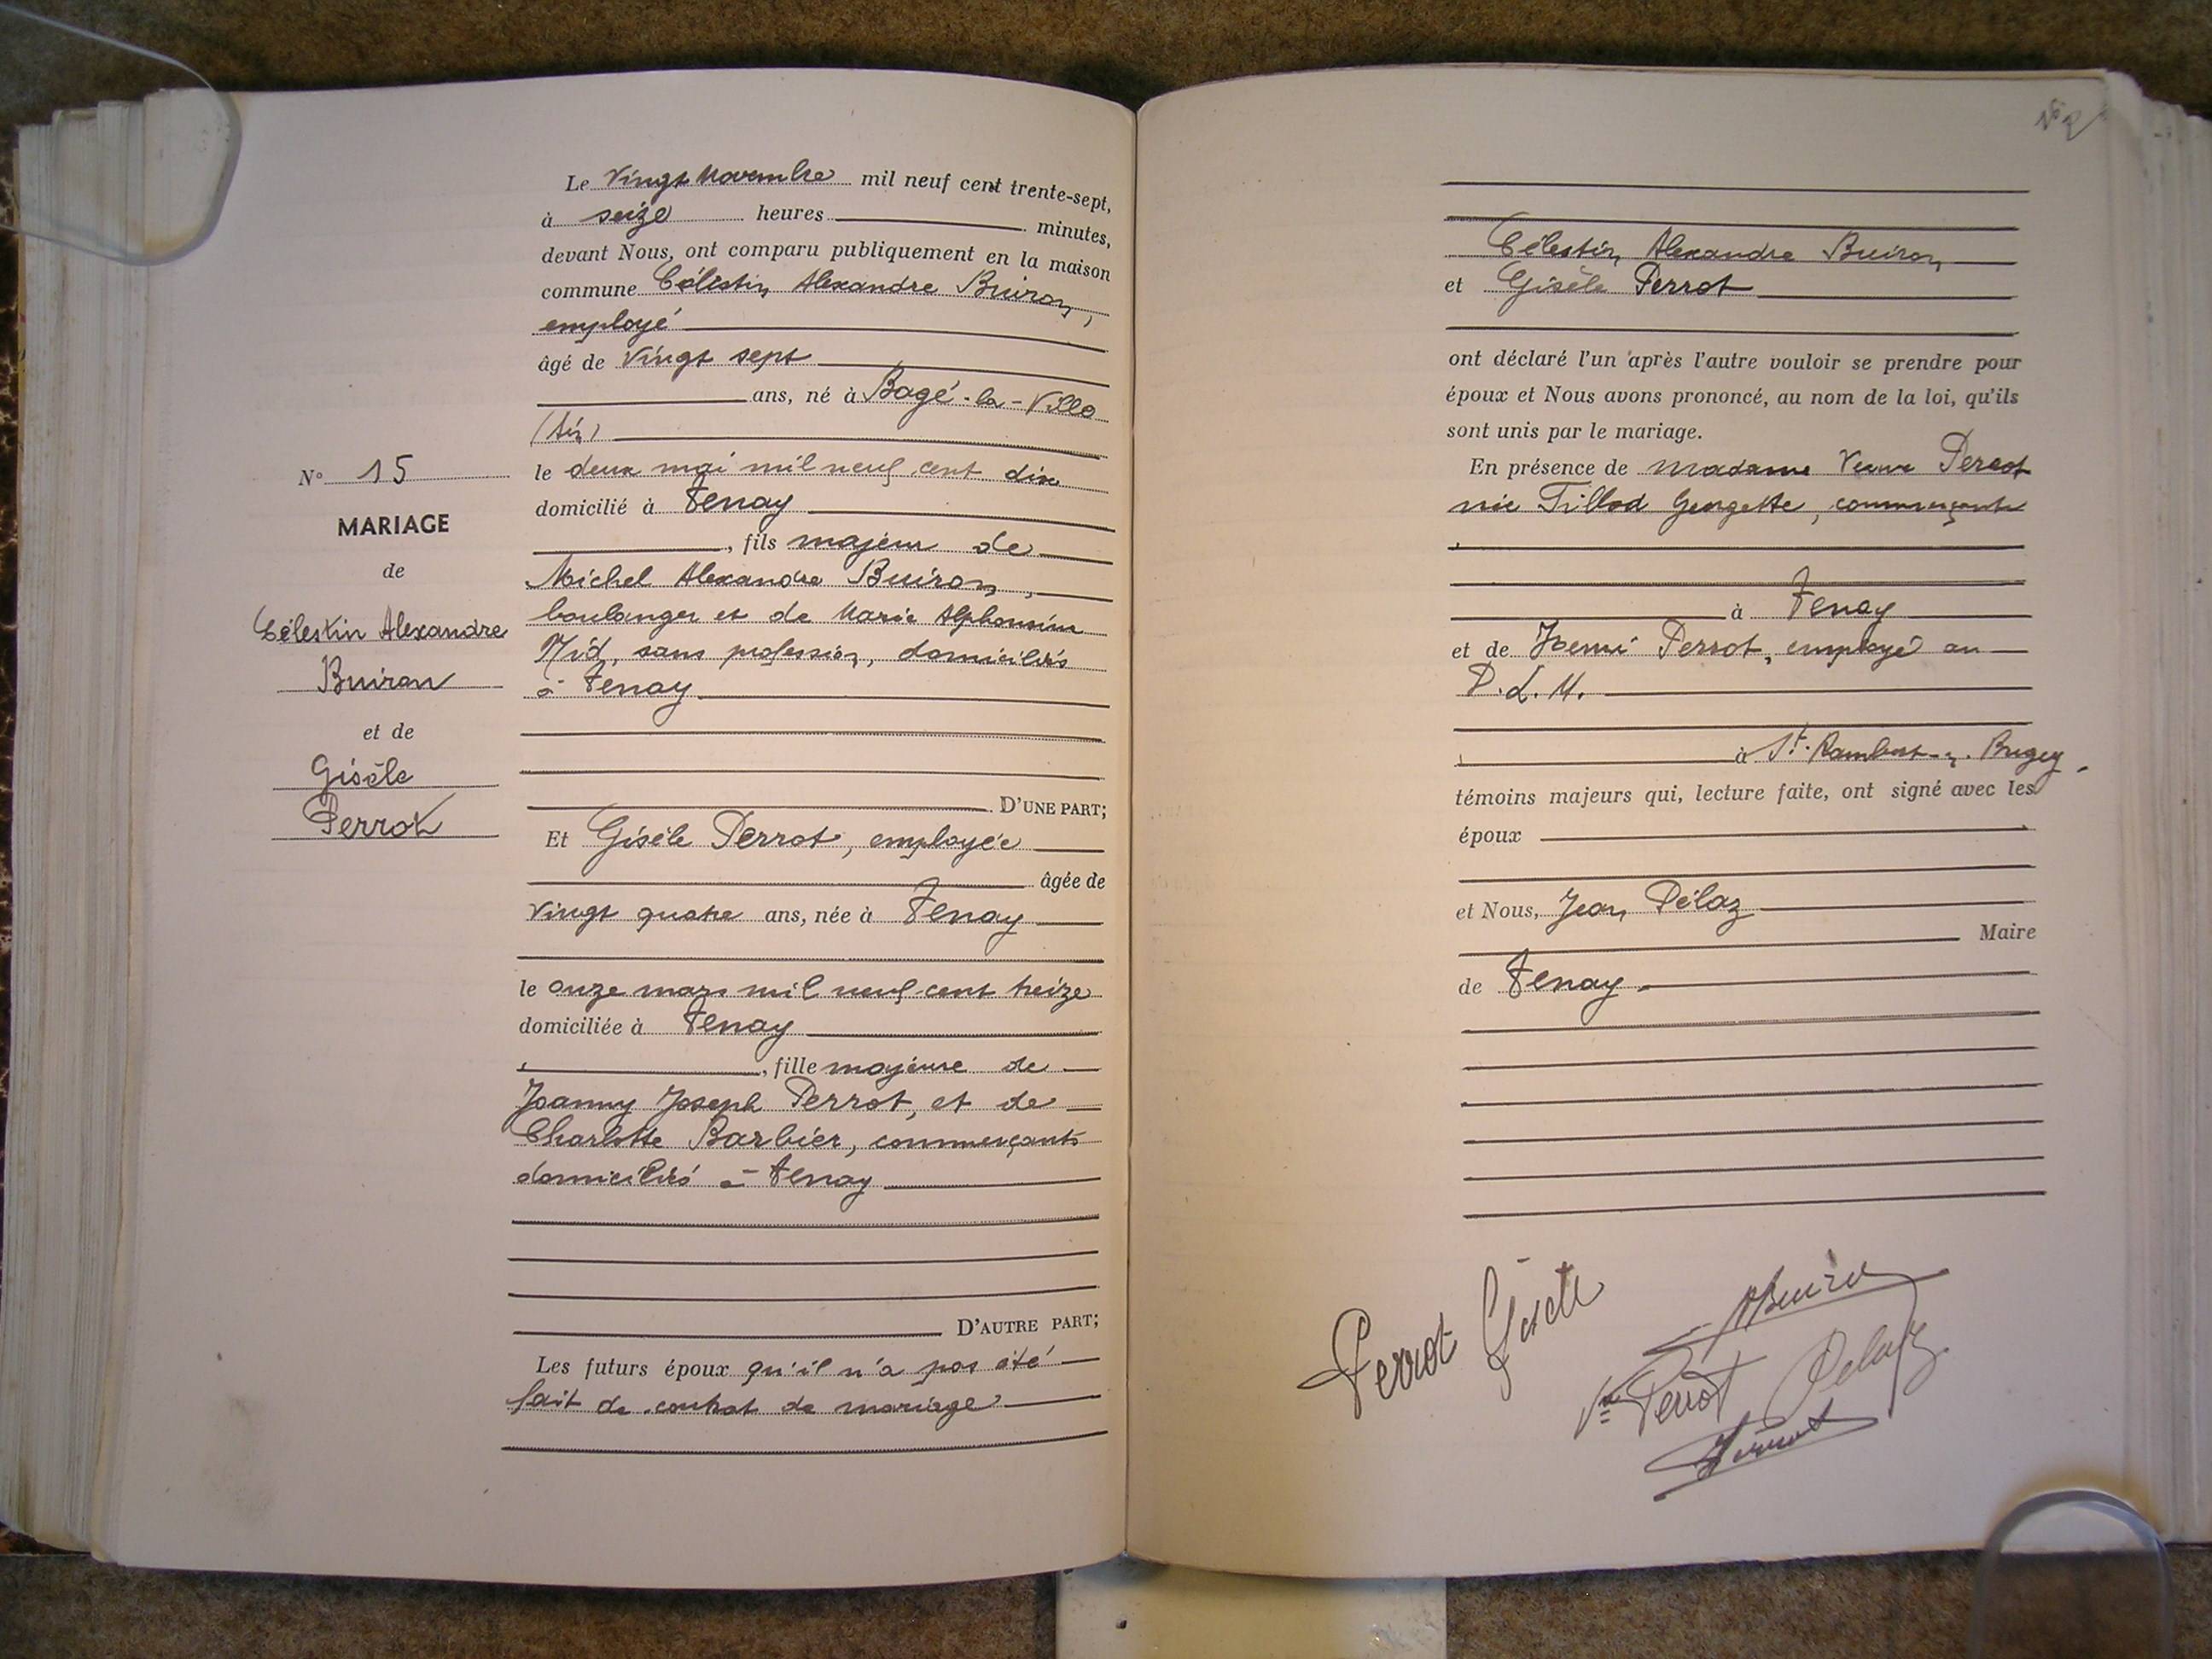 Le Vingt Novembre mil neuf cent trente-sept,
à seize heures minutes,
devant Nous, ont comparu publiquement en la maison
commune Célestin Alexandre Buiron,
employé
âgé de Vingt sept
ans, né à Bagé-la-Ville
(Ain)
le deux mai mil neuf cent dix
domicilié à Tenay
, fils majeur de
Michel Alexandre Buiron,
boulanger et de Marie Alphonsine
Nid, sans profession, domiciliés
à Tenay
D'UNE PART;
Et Gisèle Perrot, employée
âgée de
Vingt quatre ans, née à Tenay
le onze mars mil neuf cent treize
domiciliée à Tenay
, fille majeure de
Joanny Joseph Perrot, et de
Charlotte Barbier, commerçants
domiciliés à Tenay
D'AUTRE PART;
Les futurs époux qu'il n'a pas été
fait de contrat de mariage
N° 15
MARIAGE
de
Célestin Alexandre
Buiron
et de
Gisèle
Perrot
Célestin Alexandre Buiron
et Gisèle Perrot
ont déclaré l'un après l'autre vouloir se prendre pour
époux et Nous avons prononcé, au nom de la loi, qu'ils
sont unis par le mariage.
En présence de Madame Veuve Perrot
née Tillod Georgette, commerçante
à Tenay
et de Henri Perrot, employé au
P.L.M.
à St. Rambert-en-Bugey,
témoins majeurs qui, lecture faite, ont signé avec les
époux
et Nous, Jean Pélaz
Maire
de Tenay.
Perrot Gisèle
Buiron
Vve Perrot Pelaz
Perrot